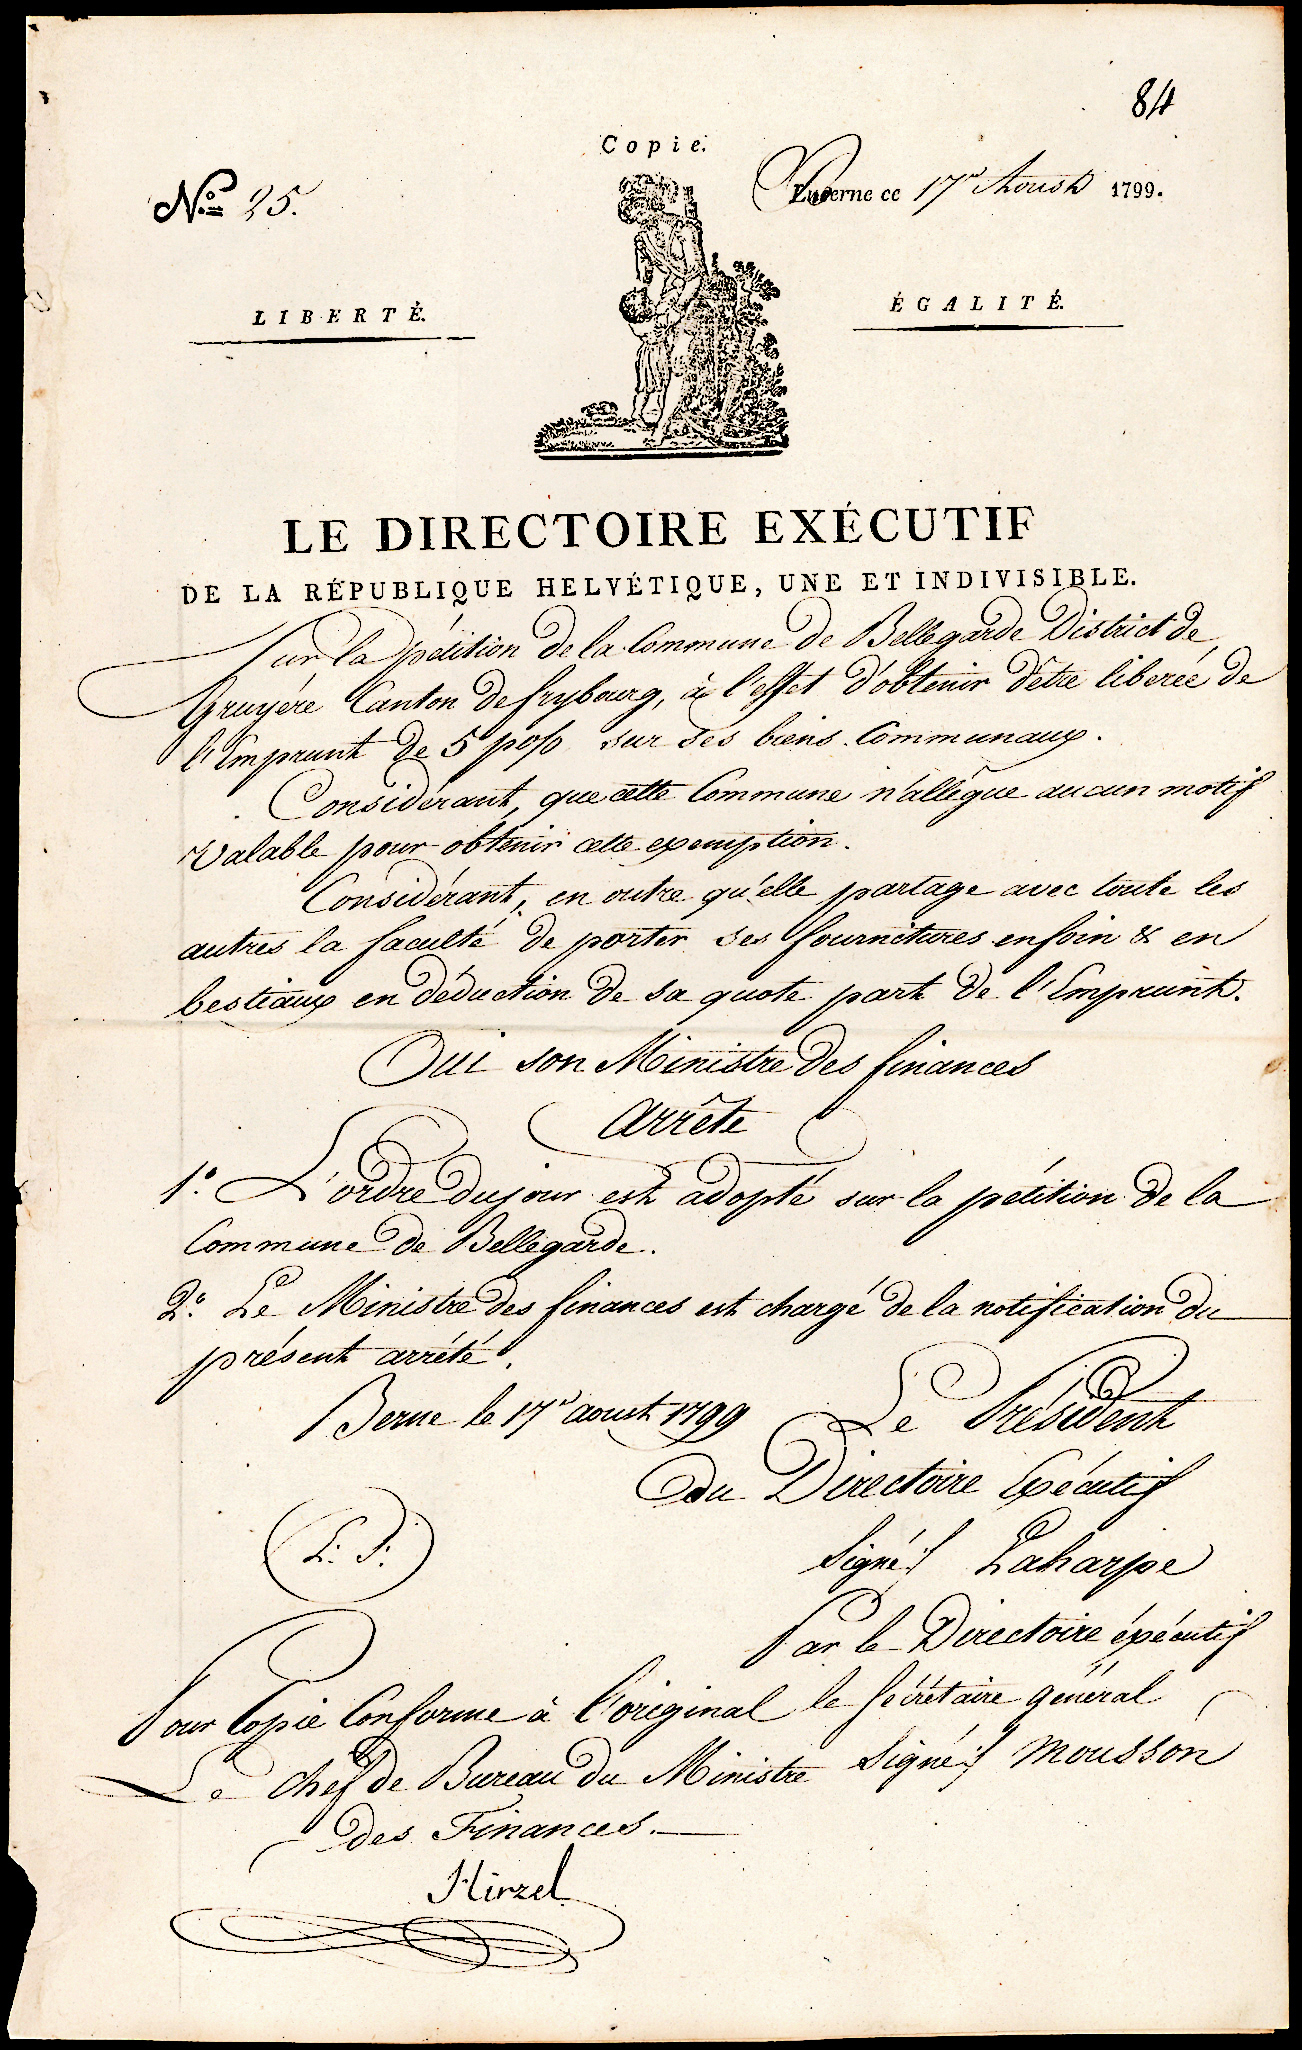 84
Copie.
Nº 25.
Lucerne ce 17.r Aoust 1799.
LIBERTÉ.
ÉGALITÉ.
LE DIRECTOIRE EXÉCUTIF
DE LA RÉPUBLIQUE HELVÉTIQUE, UNE ET INDIVISIBLE.
Sur la pétition de la Commune de Bellegarde District de
Gruyére Canton de frybourg, à l'effet d'obtenir d'être liberée de
l'Emprunt de 5 po/o sur ses biens Communaux.
Considérant, que cette Commune n'allégue aucun motif
Valable pour obtenir cette exemption.
Considérant, en outre qu'elle partage avec toute les
autres la faculté de porter ses fournitures en foin & en
bestiaux en déduction de sa quote part de l'Emprunt.
Oui son Ministre des finances
Arrête
1.º L'ordre du jour est adopté sur la pétition de la
Commune de Bellegarde.
2.º Le Ministre des finances est chargé de la notification du
présent arrêté.
Berne le 17.r aoust 1799
Le Président
du Directoire Exécutif
(L. S.)
Signé:/ Laharpe
Par le Directoire éxécutif
le Secrétaire général
Signé:/ Mousson
Pour Copie Conforme à l'original
Le Chef de Bureau du Ministre
des Finances.
Hirzel